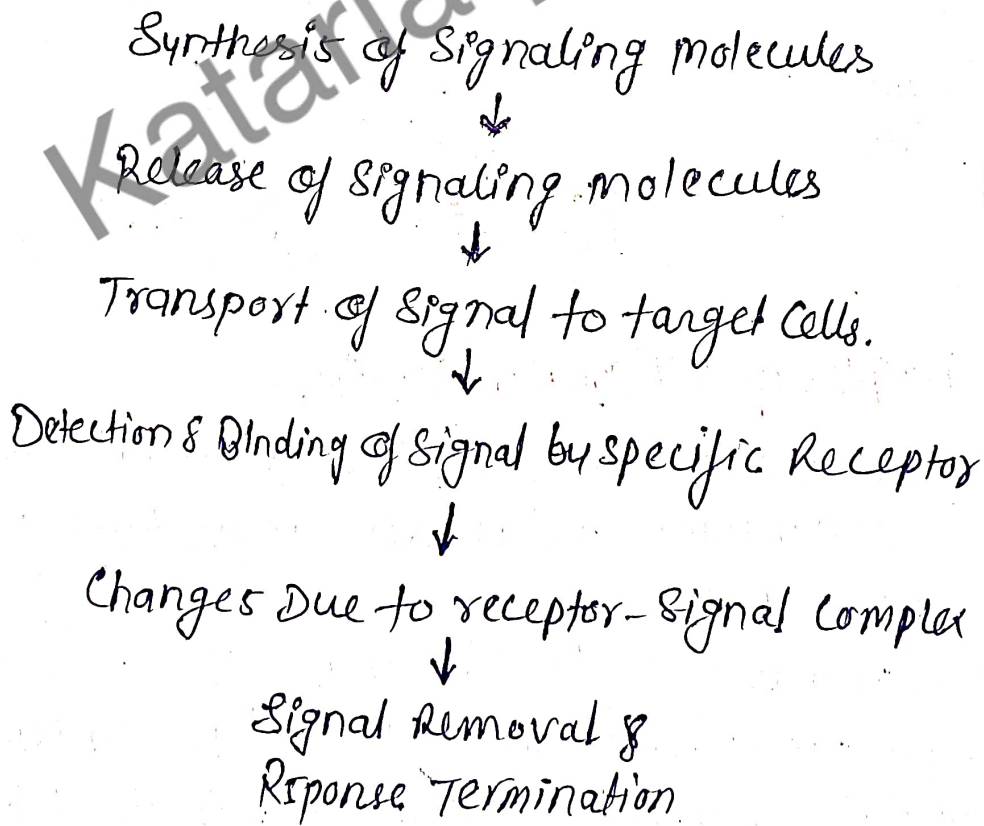 Kataria
Synthesis of Signaling molecules
↓
Release of Signaling molecules
↓
Transport of Signal to target Cells.
↓
Detection & Binding of Signal by specific Receptor
↓
Changes Due to receptor-Signal Complex
↓
Signal Removal &
Rsponse Termination